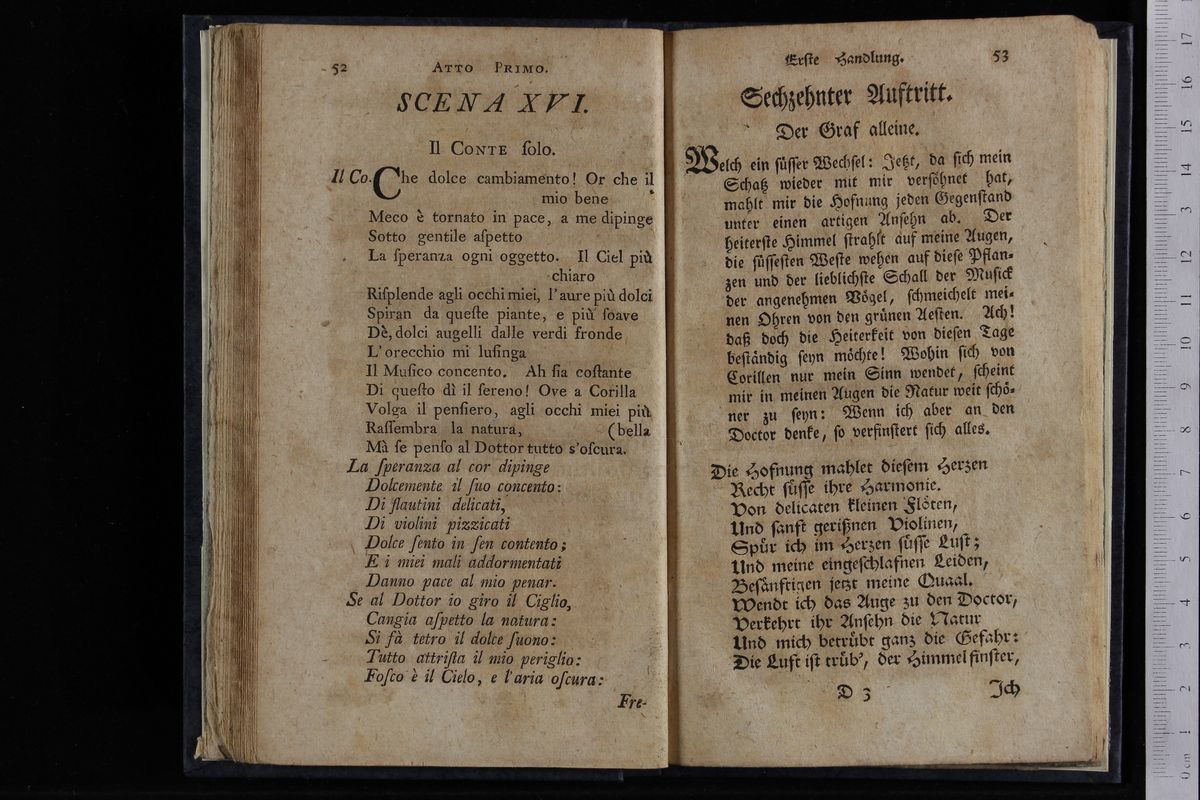 52 ATTO PRIMO.
SCENA XVI.
Il CONTE ſolo.
Il Co. Che dolce cambiamento! Or che il
mio bene
Meco è tornato in pace, a me dipinge
Sotto gentile aſpetto
La ſperanza ogni oggetto. Il Ciel più
chiaro
Riſplende agli occhi miei, l'aure più dolci
Spiran da queſte piante, e più ſoave
Dè, dolci augelli dalle verdi fronde
L'orecchio mi luſinga
Il Muſico concento. Ah ſia coſtante
Di queſto dì il ſereno! Ove a Corilla
Volga il penſiero, agli occhi miei più
Raſſembra la natura, (bella
Mà ſe penſo al Dottor tutto s'oſcura.
La ſperanza al cor dipinge
Dolcemente il ſuo concento:
Di flautini delicati,
Di violini pizzicati
Dolce ſento in ſen contento;
E i miei mali addormentati
Danno pace al mio penar.
Se al Dottor io giro il Ciglio,
Cangia aſpetto la natura:
Si fà tetro il dolce ſuono:
Tutto attriſta il mio periglio:
Foſco è il Cielo, e l'aria oſcura:
Fre-
Erſte Handlung. 53
Sechzehnter Auftritt.
Der Graf alleine.
Welch ein ſüſſer Wechſel: Jetzt, da ſich mein
Schatz wieder mit mir verſöhnet hat,
mahlt mir die Hofnung jeden Gegenſtand
unter einen artigen Anſehn ab. Der
heiterſte Himmel ſtrahlt auf meine Augen,
die ſüſſeſten Weſte wehen auf dieſe Pflan-
zen und der lieblichſte Schall der Muſick
der angenehmen Vögel, ſchmeichelt mei-
nen Ohren von den grünen Aeſten. Ach!
daß doch die Heiterkeit von dieſen Tage
beſtändig ſeyn möchte! Wohin ſich von
Corillen nur mein Sinn wendet, ſcheint
mir in meinen Augen die Natur weit ſchö-
ner zu ſeyn: Wenn ich aber an den
Doctor denke, ſo verfinſtert ſich alles.
Die Hofnung mahlet dieſem Herzen
Recht ſüſſe ihre Harmonie.
Von delicaten kleinen Flöten,
Und ſanft gerißnen Violinen,
Spür ich im Herzen ſüſſe Luſt;
Und meine eingeſchlafnen Leiden,
Beſänftigen jetzt meine Quaal.
Wendt ich das Auge zu den Doctor,
Verkehrt ihr Anſehn die Natur
Und mich betrübt ganz die Gefahr:
Die Luft iſt trüb', der Himmel finſter,
D 3 Ich
17
16
15
14
13
12
11
10
9
8
7
6
5
4
3
2
1
0 cm